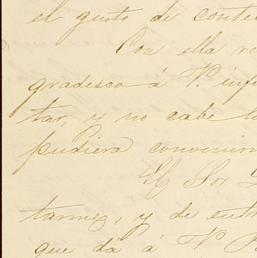 el gusto de conte
Con ella re
gradesco á V. infi
tar, y no cabe l
pudiera convenirm
El Sor
tarme, y de entr
que dá á V.